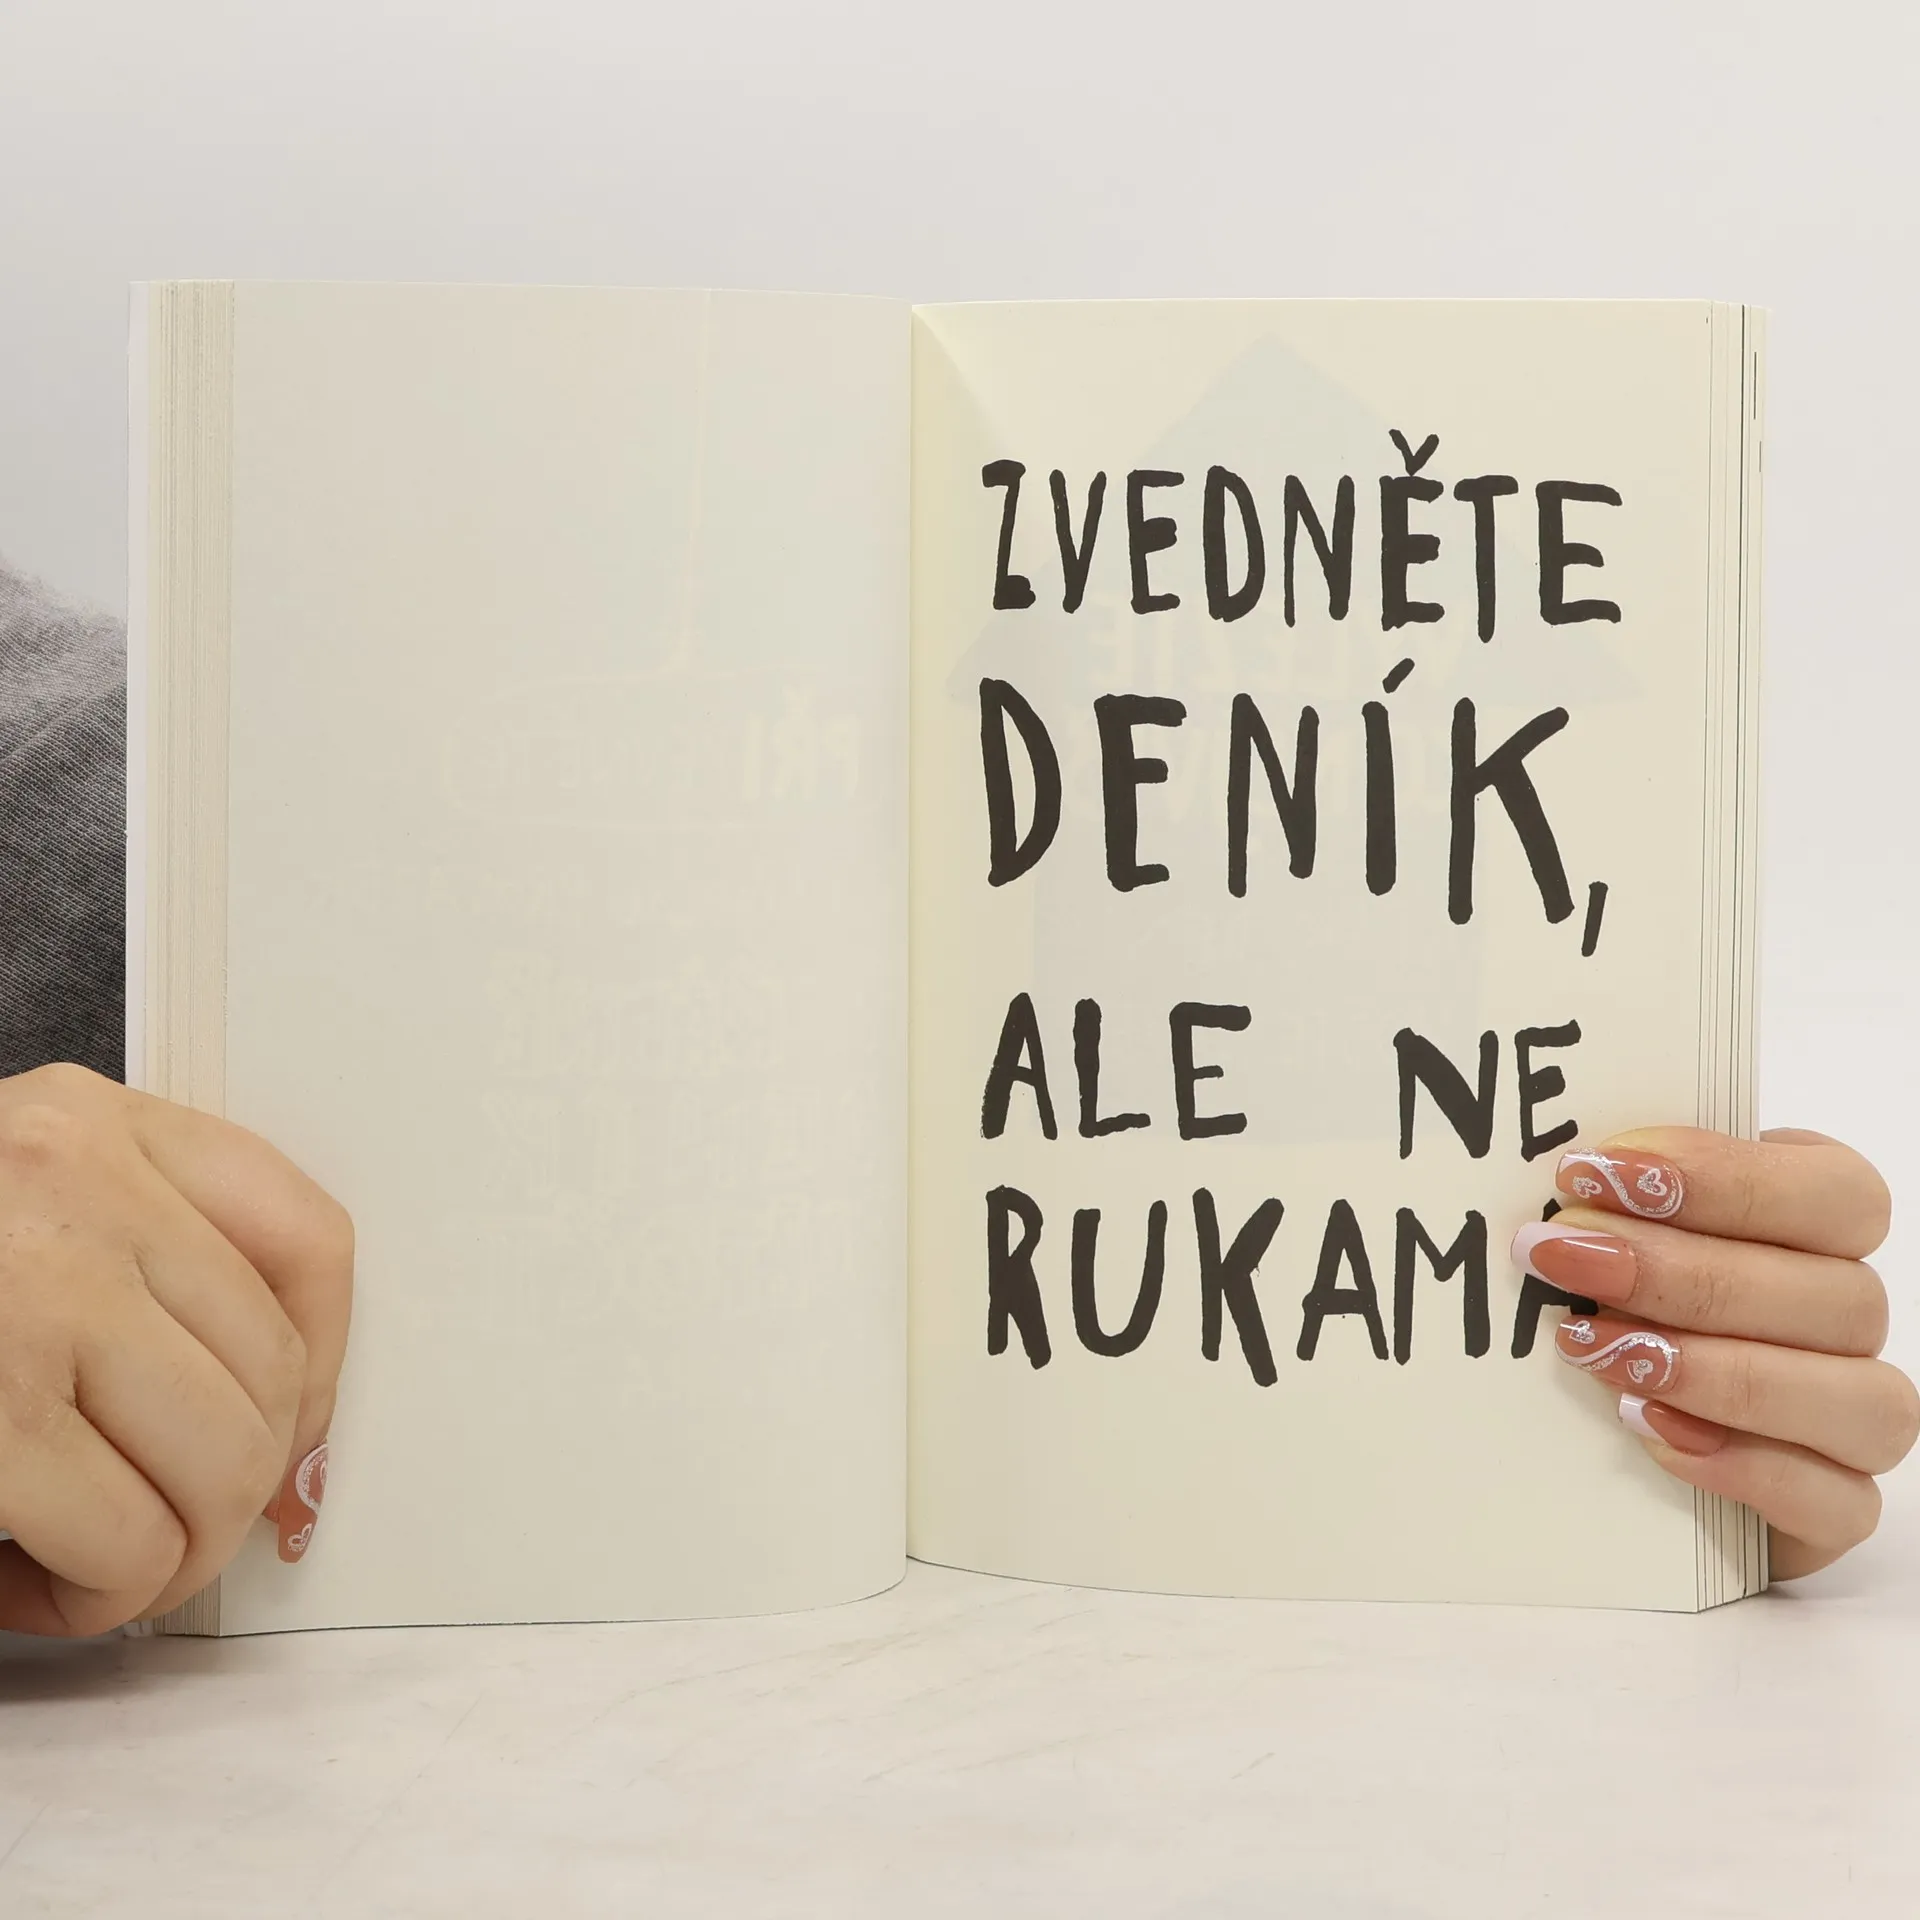 ZVEDNĚTE
DENÍK,
ALE NE
RUKAMA